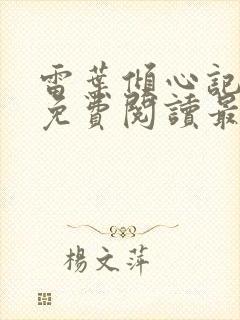 雷葉傾心記
免費閱讀最
楊文萍